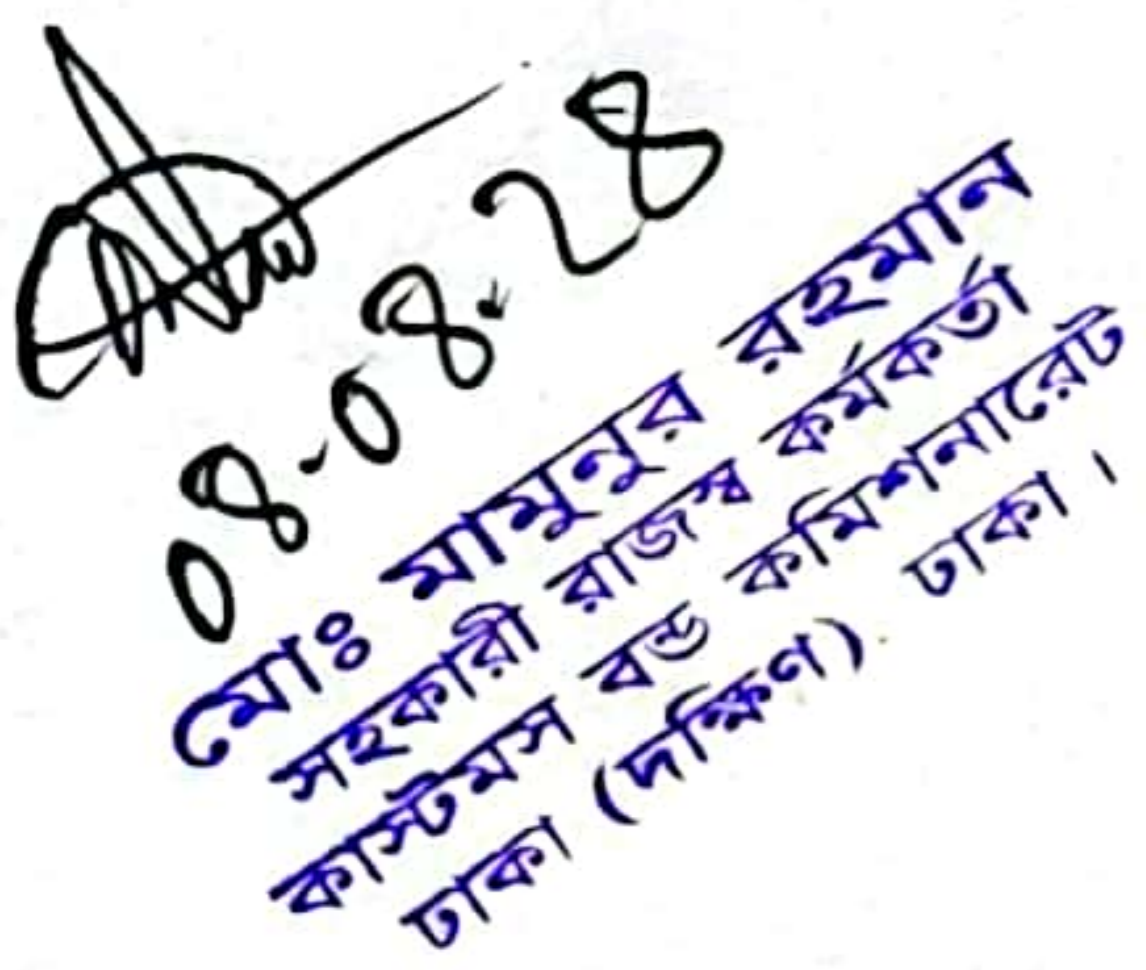 ০৪-০৪.২৪
মোঃ মামুনুর রহমান
সহকারী রাজস্ব কর্মকর্তা
কাস্টমস বন্ড কমিশনারেট
ঢাকা (দক্ষিণ) ঢাকা ।